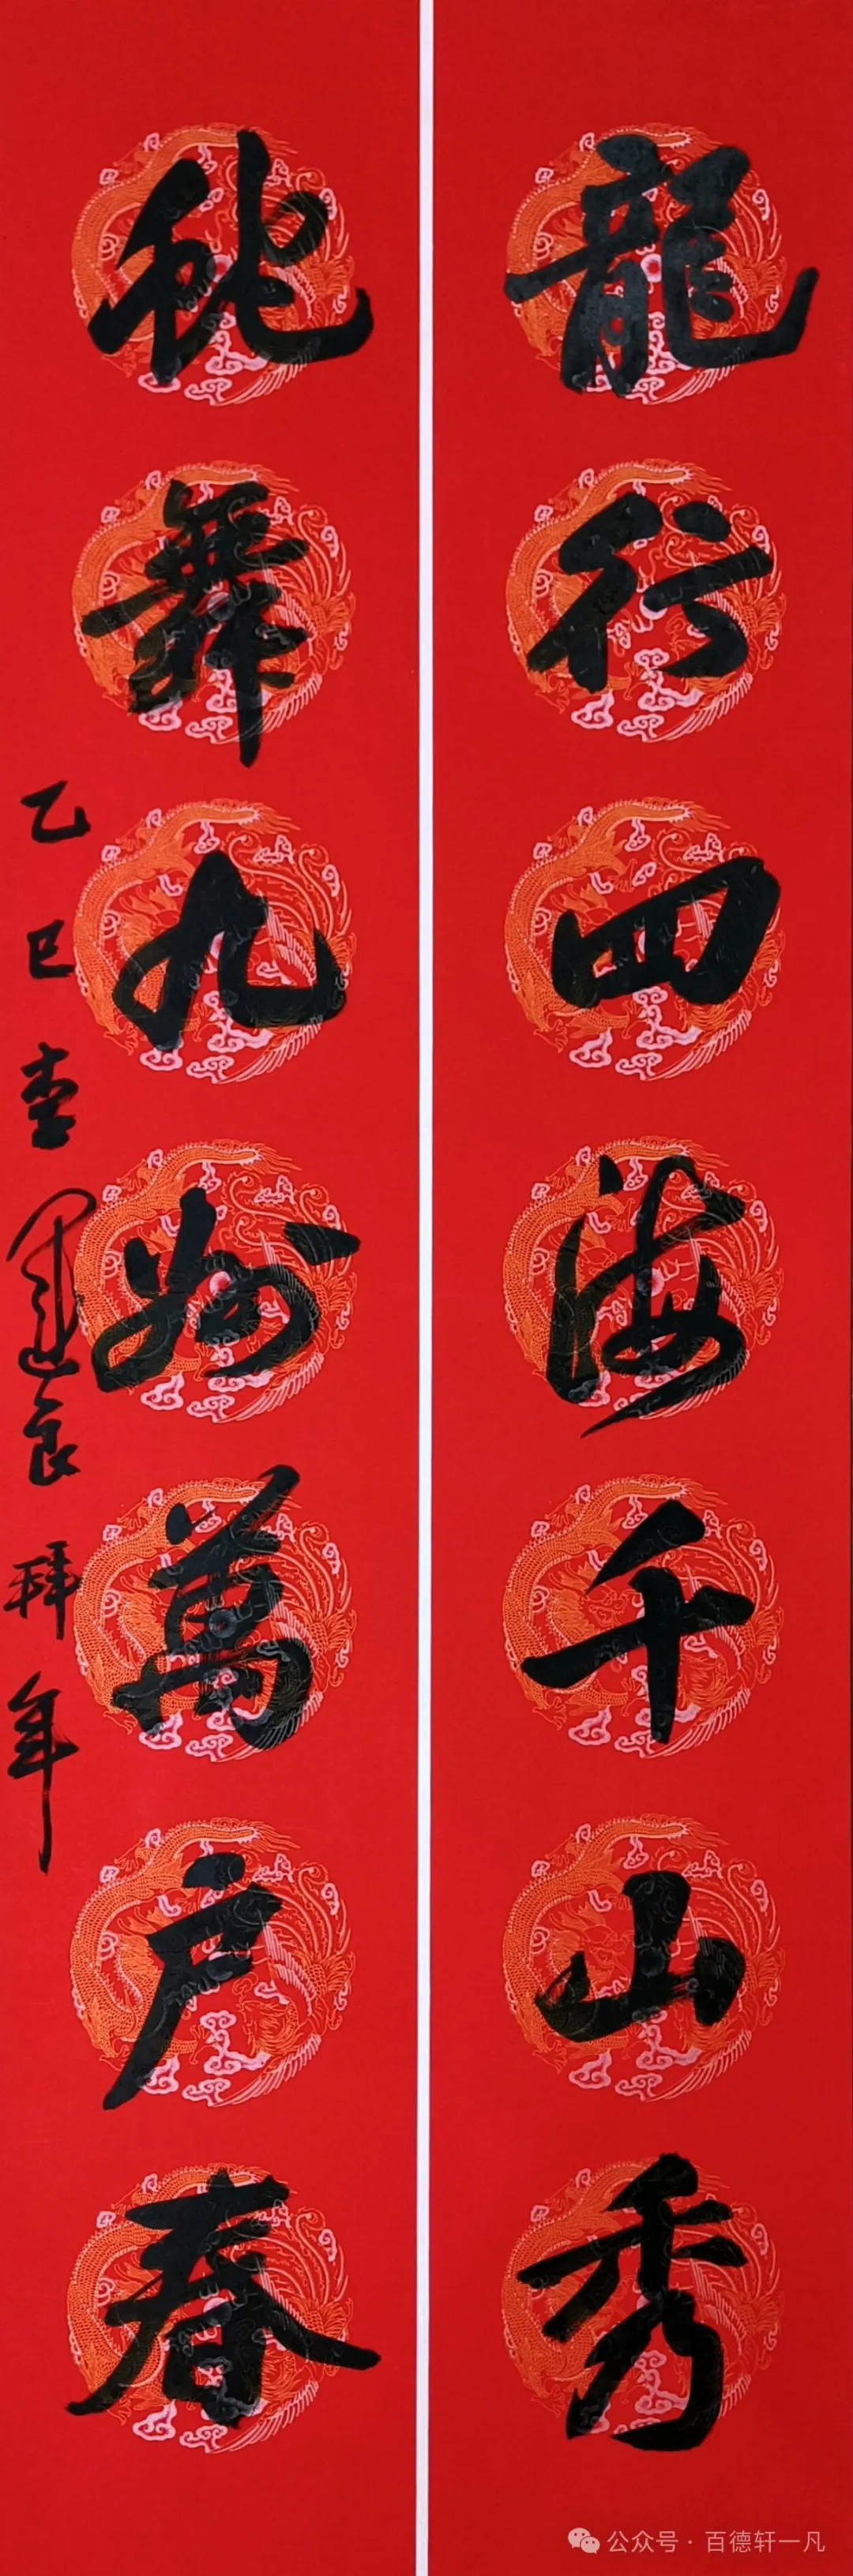 龍行四海千山秀
虵舞九州萬户春
乙巳春
良拜年
公众号 · 百德轩一凡